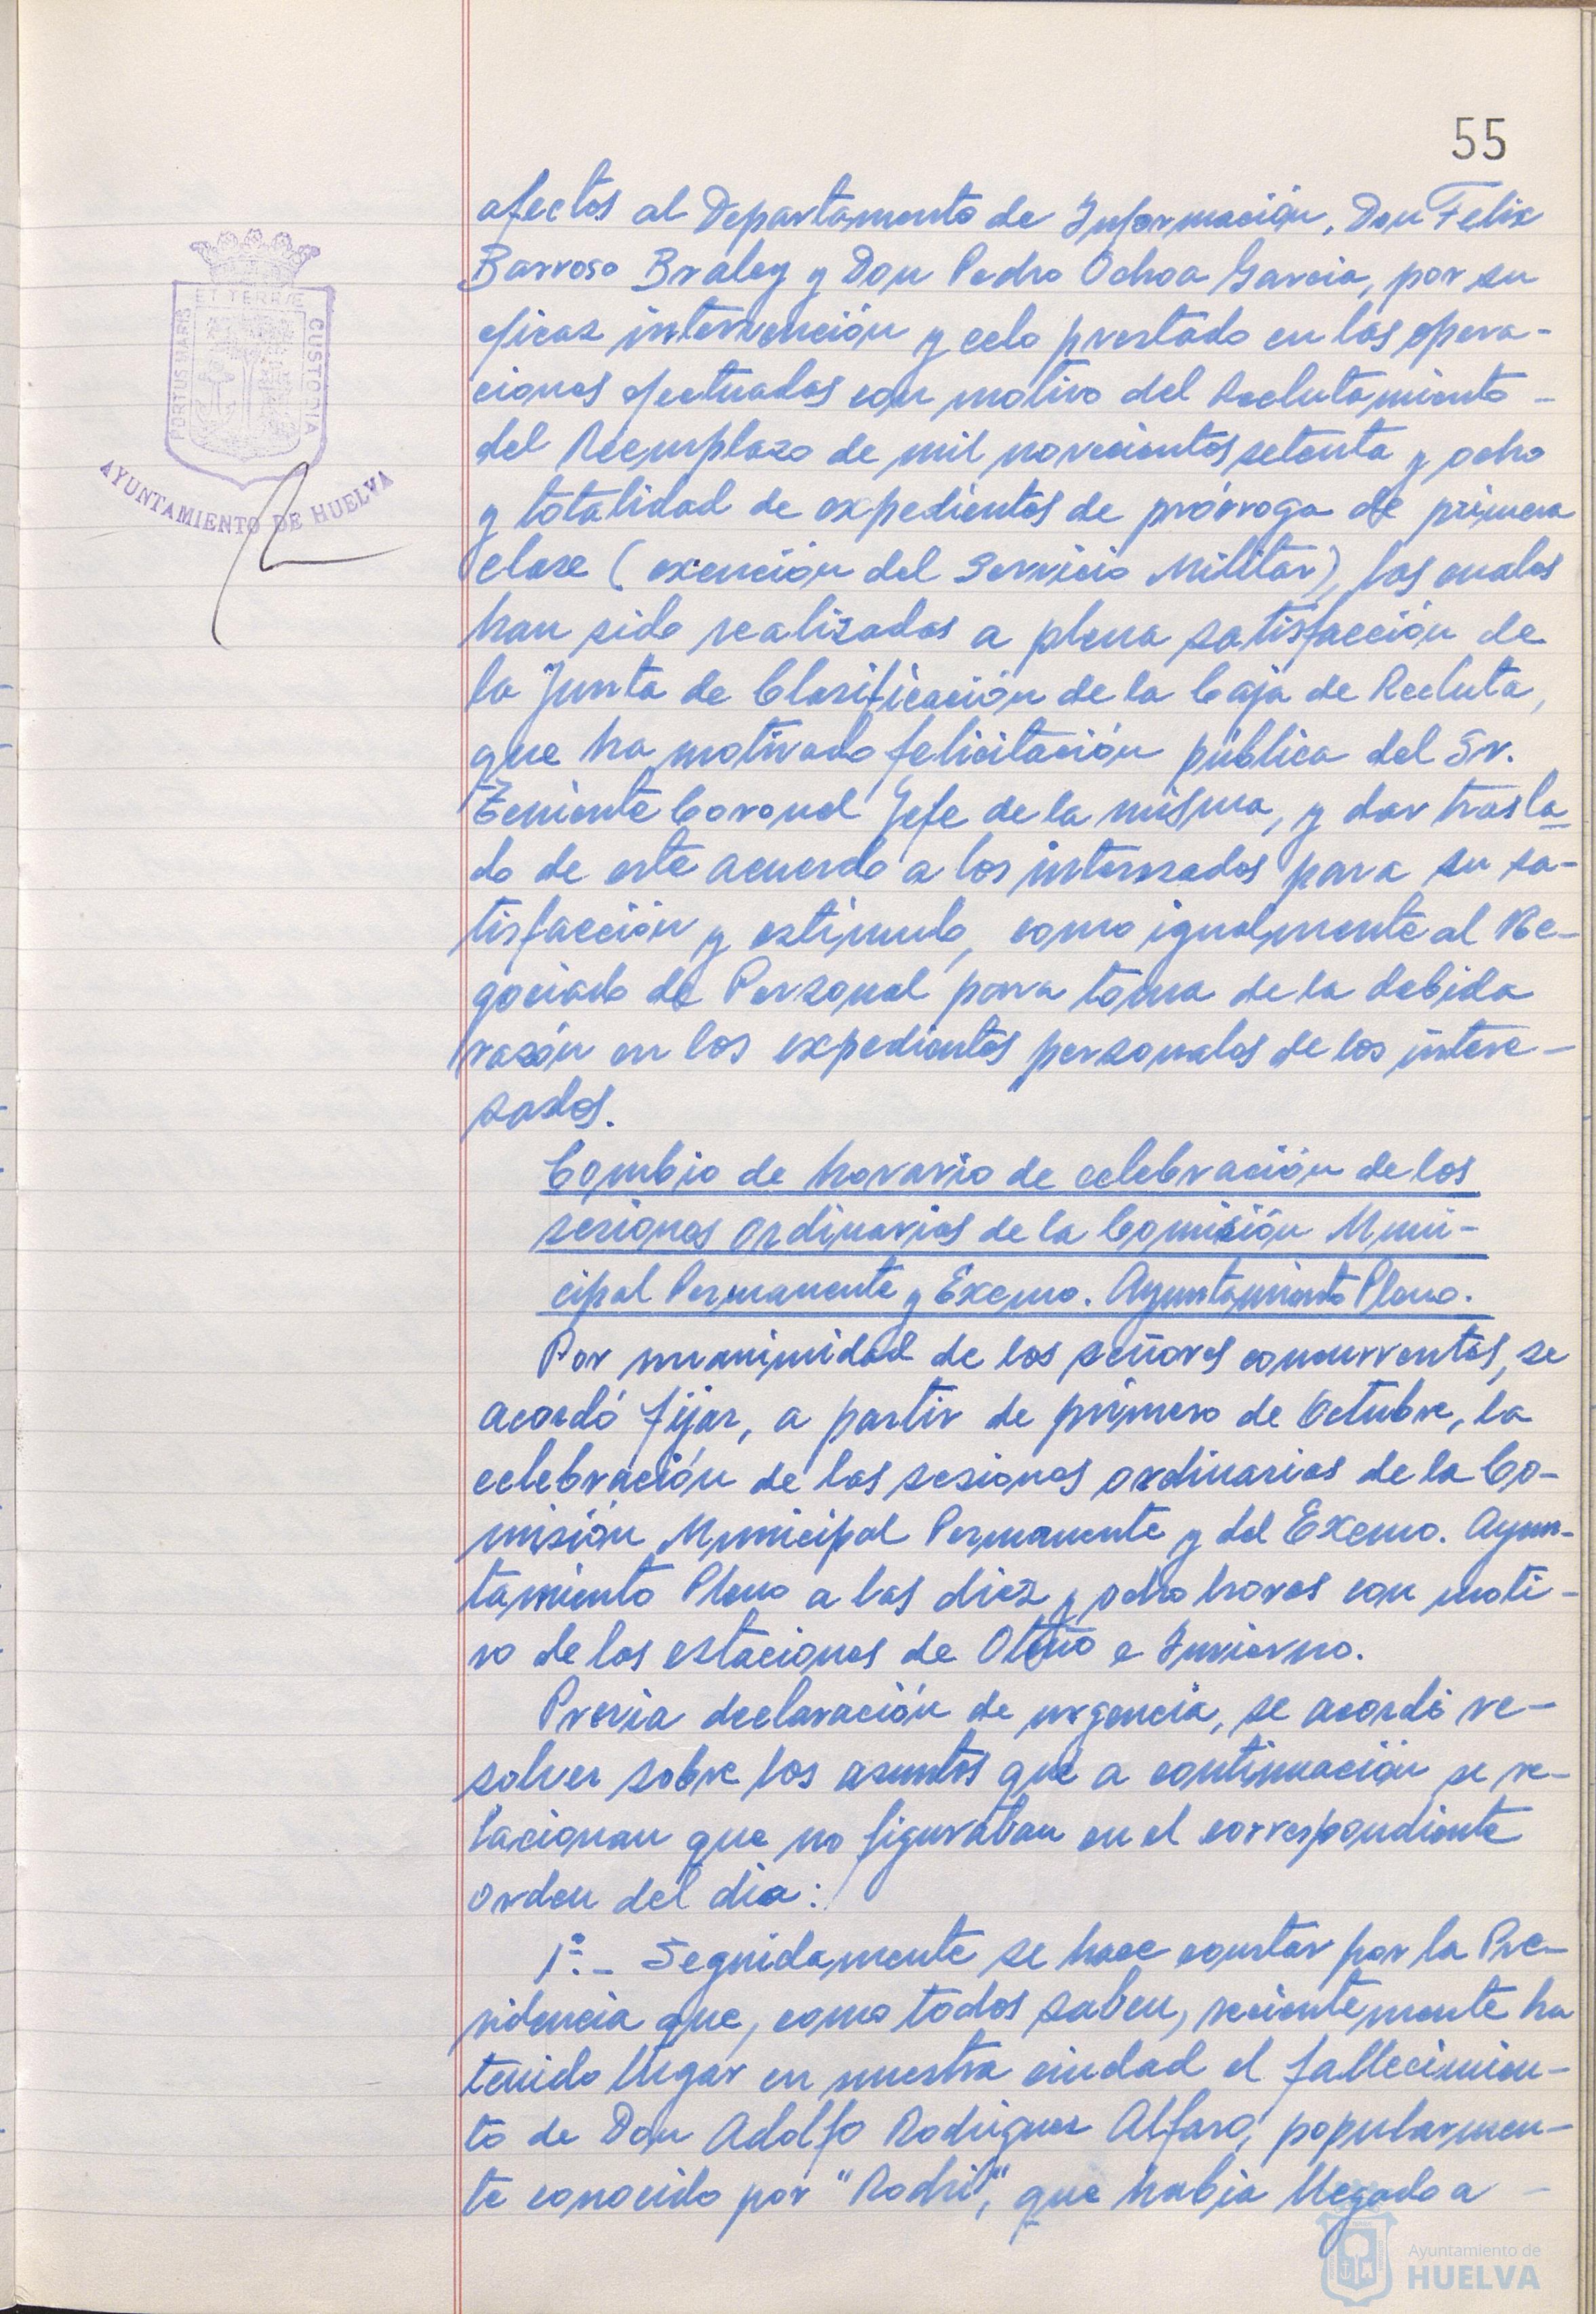 55
afectos al Departamento de Información, Don Felix
Barroso Braley y Don Pedro Ochoa Garcia, por su
eficaz intervención y celo prestado en las opera-
ciones efectuadas con motivo del Reclutamiento -
del Reemplazo de mil novecientos setenta y ocho
y totalidad de expedientes de prórroga de primera
clase (exención del Servicio Militar), las cuales
han sido realizadas a plena satisfacción de
la Junta de Clasificación de la Caja de Recluta,
que ha motivado felicitación pública del Sr.
Teniente Coronel Jefe de la misma, y dar trasla
do de este acuerdo a los interesados para su sa-
tisfacción y estímulo, como igualmente al Ne-
gociado de Personal para toma de la debida
razón en los expedientes personales de los intere-
sados.
Cambio de horario de celebración de las
sesiones ordinarias de la Comisión Muni-
cipal Permanente y Excmo. Ayuntamiento Pleno.
Por unanimidad de los señores concurrentes, se
acordó fijar, a partir de primero de Octubre, la
celebración de las sesiones ordinarias de la Co-
misión Municipal Permanente y del Excmo. Ayun-
tamiento Pleno a las diez y ocho horas con moti-
vo de las estaciones de Otoño e Invierno.
Previa declaración de urgencia, se acordó re-
solver sobre los asuntos que a continuación se re-
lacionan que no figuraban en el correspondiente
orden del dia:
1º.- Seguidamente se hace constar por la Pre-
sidencia que, como todos saben, recientemente ha
tenido lugar en nuestra ciudad el fallecimien-
to de Don Adolfo Rodriguez Alfaro, popularmen-
te conocido por "Rodri", que habia llegado a -
PORTUS MARIS
ET TERRÆ
CUSTODIA
AYUNTAMIENTO DE HUELVA
Ayuntamiento de
HUELVA